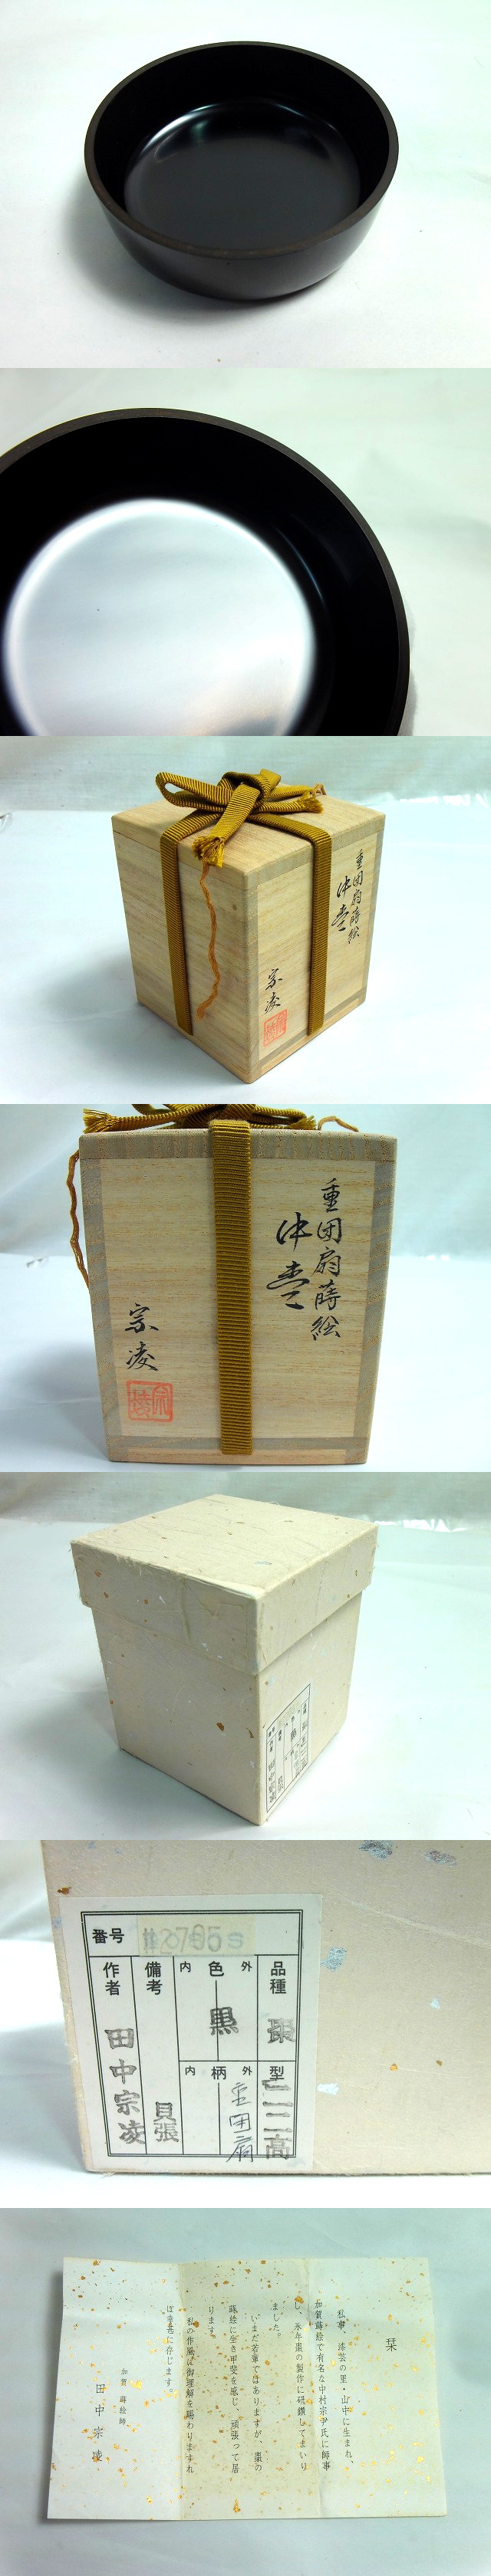 重団扇蒔絵
中棗
宗凌
重団扇蒔絵
中棗
宗凌
番号
品種
棗
型
高
色
内
外
黒
柄
内
外
重団扇
備考
貝張
作者
田中宗凌
栞
私事、漆芸の里・山中に生まれ、
加賀蒔絵で有名な中村宗尹氏に師事
し、永年棗の製作に研鑽してまいり
ました。
いまだ若輩ではありますが、棗の
蒔絵に生き甲斐を感じ、頑張って居
ります。
私の作風に御理解を賜わりますれ
ば幸甚に存じます。
加賀 蒔絵師
田中宗凌